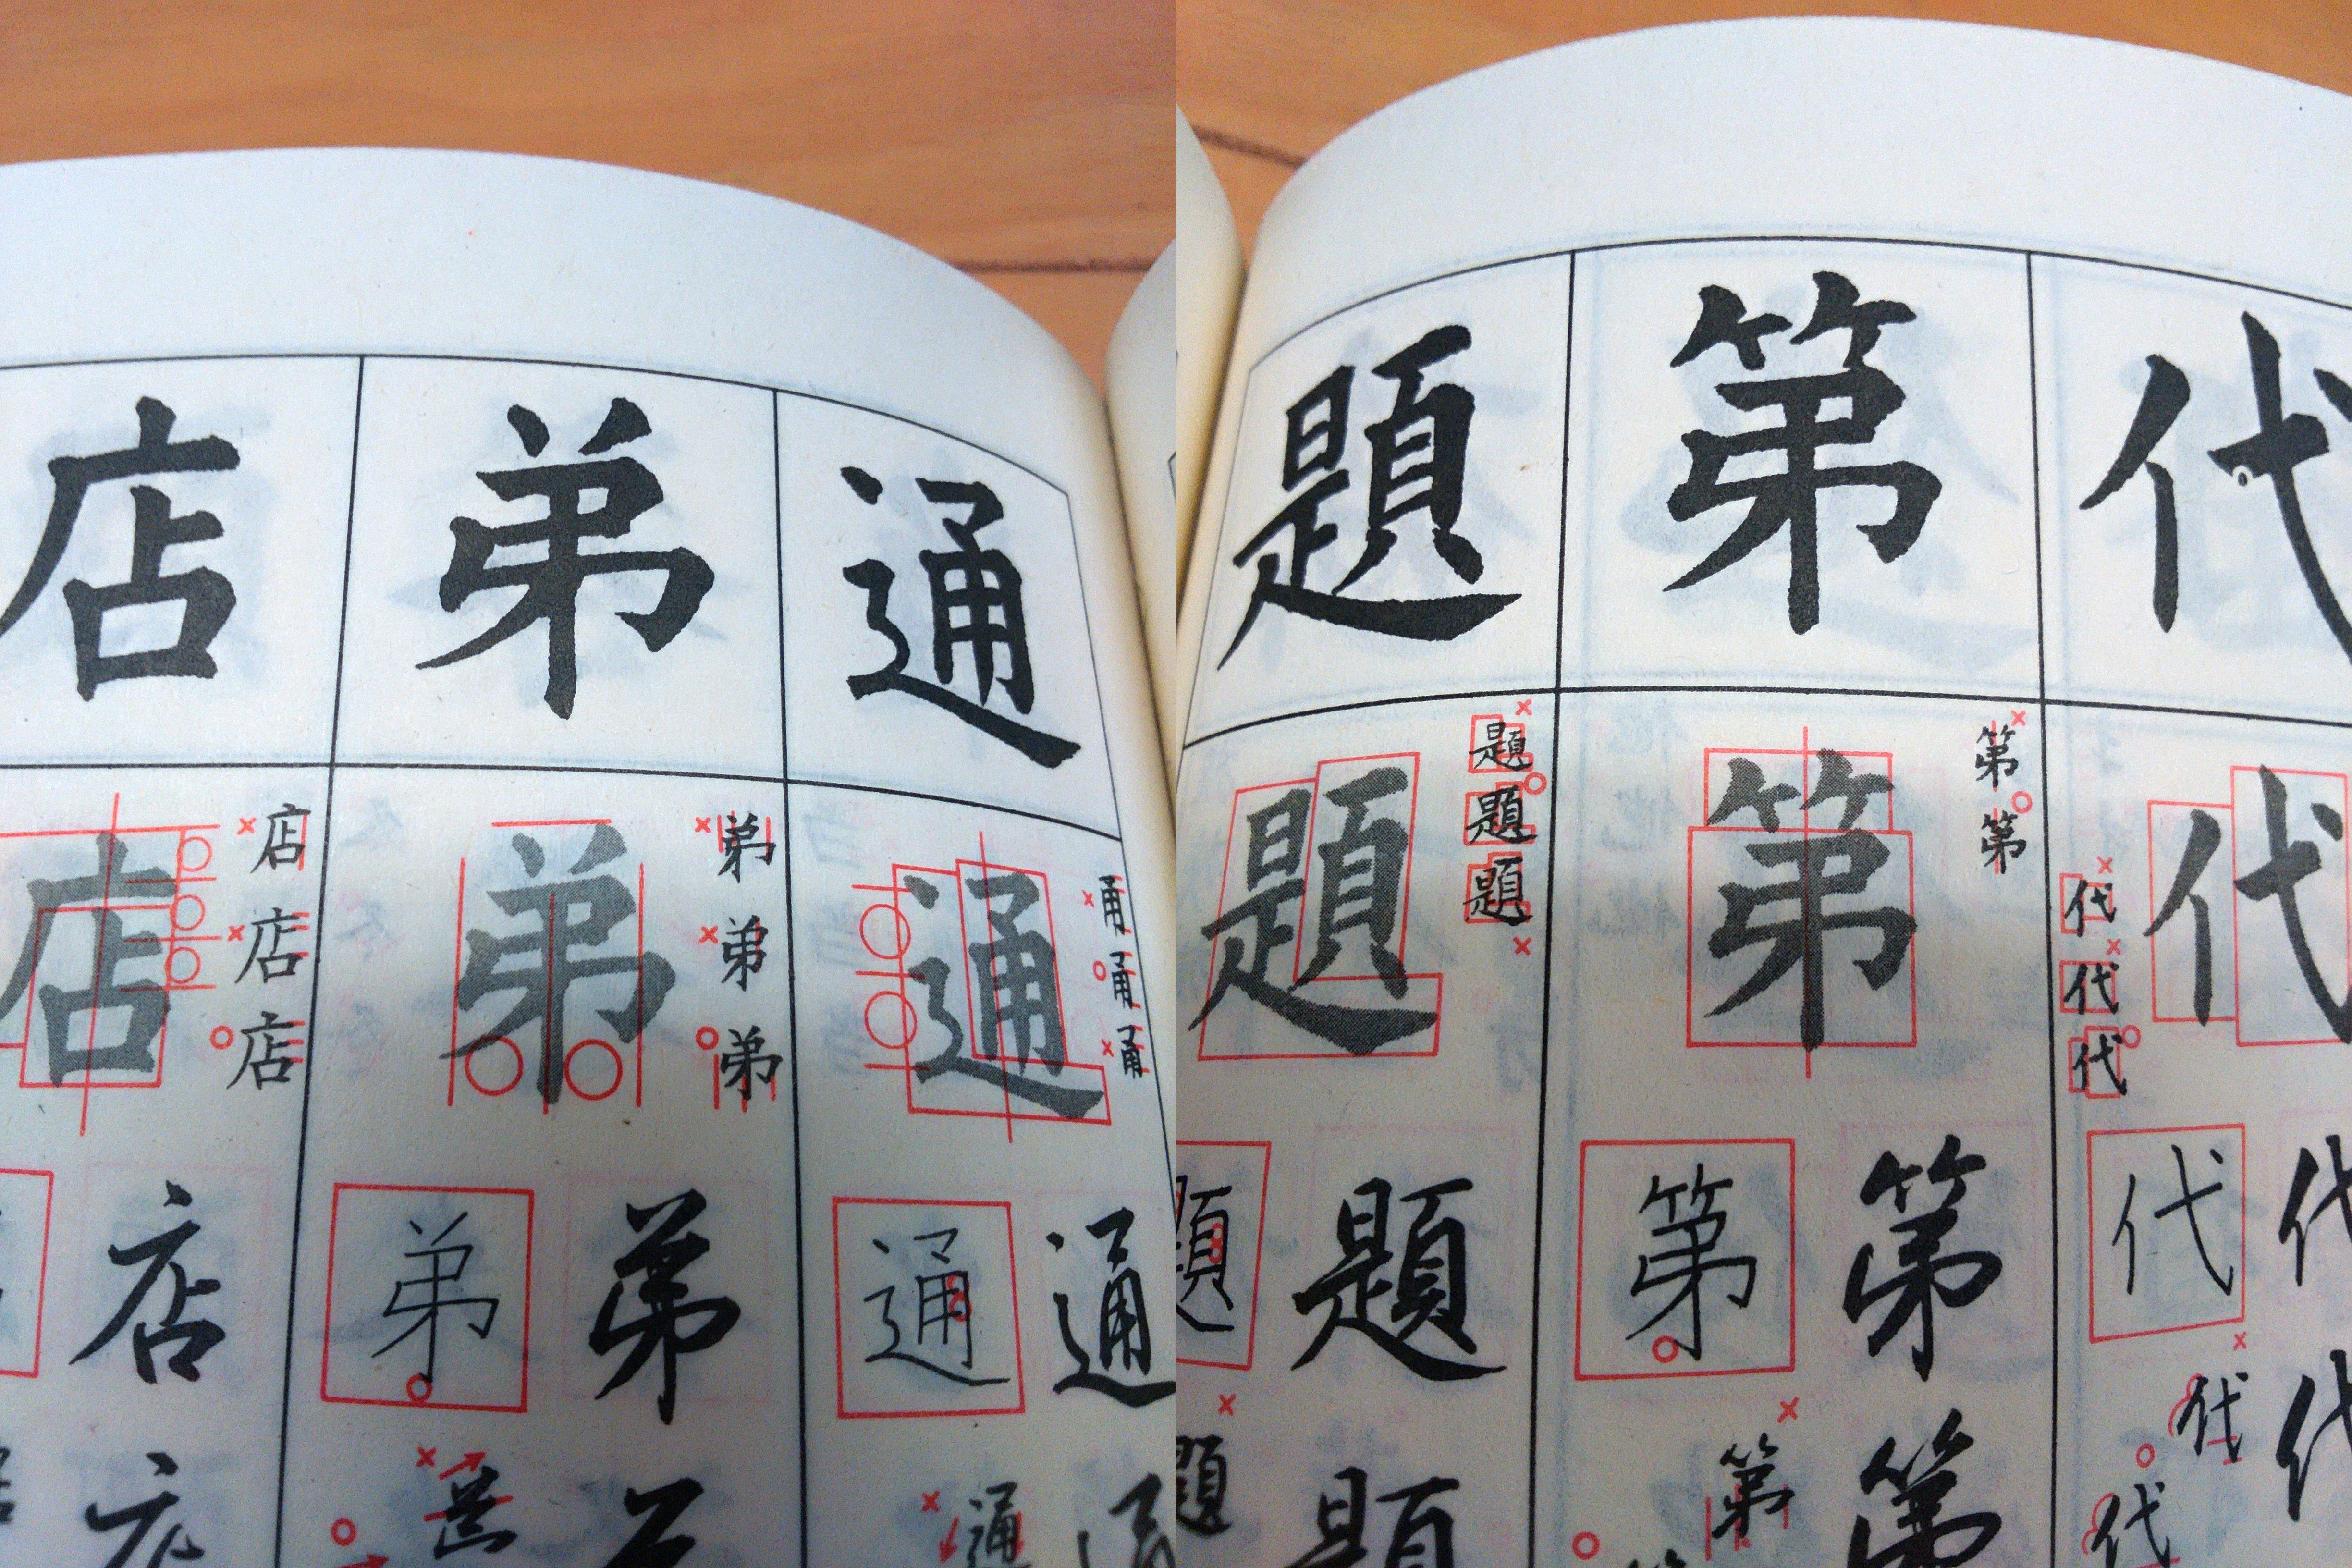 店 弟 通
題 第 代
店 弟 通
題 第 代
店 店 店
弟 弟 弟
題 題 題
第 第
代 代 代
店 弟 弟 通 通
題 題 第 第 代 代
通
題 題 第 第 代 代 代